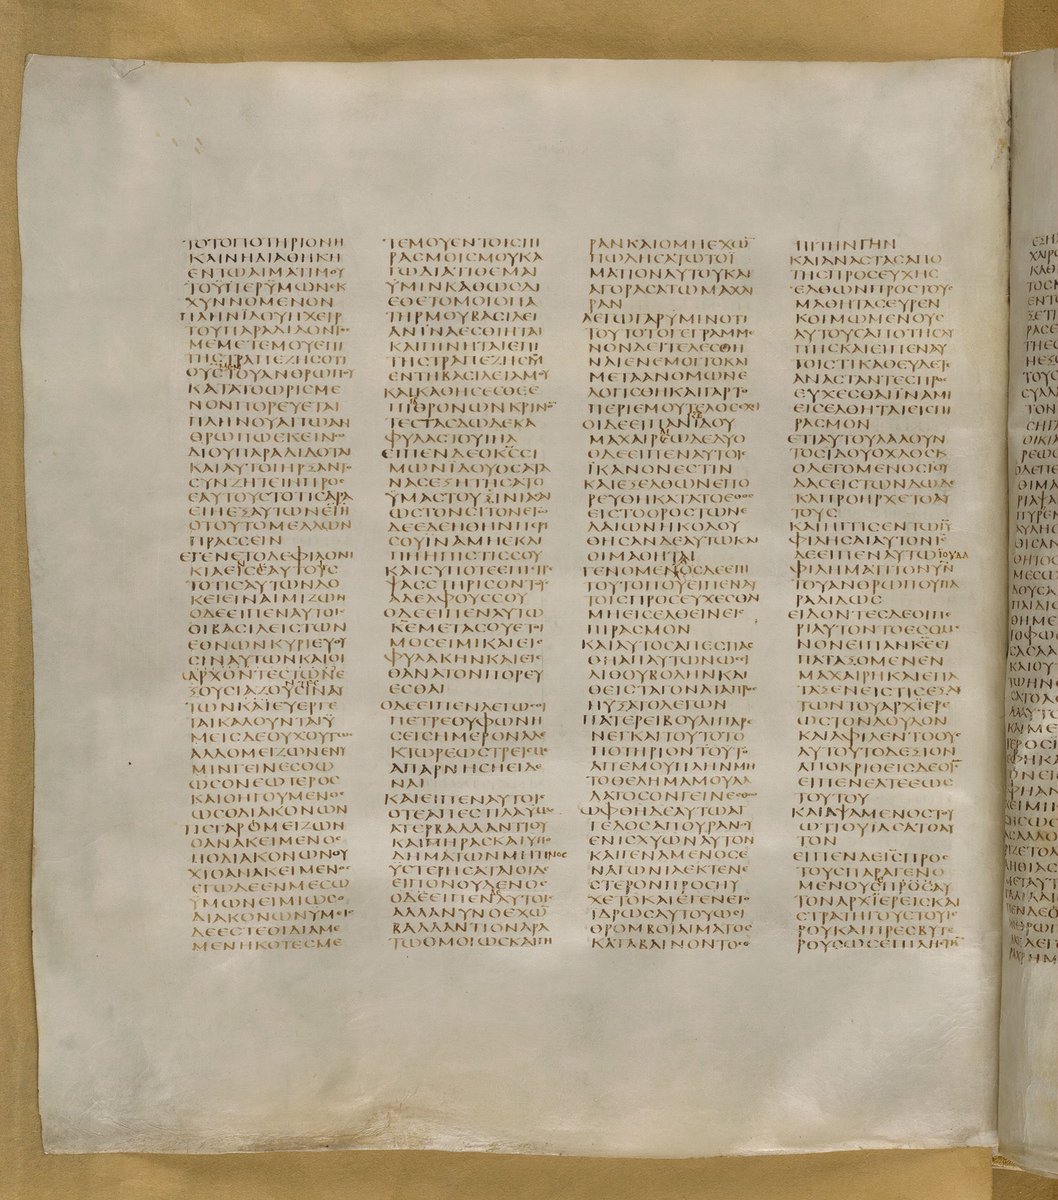 ΤΟΤΟΠΟΤΗΡΙΟΝΗ
ΚΑΙΝΗΔΙΑΘΗΚΗ
ΕΝΤΩΑΙΜΑΤΙΜΟΥ
ΤΟΫΠΕΡΫΜΩΝΕΚ
ΧΥΝΝΟΜΕΝΟΝ
ΠΛΗΝΙΔΟΥΗΧΕΙΡ
ΤΟΥΠΑΡΑΔΙΔΟΝΤΟϹ
ΜΕΜΕΤΕΜΟΥΕΠΙ
ΤΗϹΤΡΑΠΕΖΗϹΟΤΙ
ΟΥϹΤΟΥΑΝΘΡΩΠΟΥ
ΚΑΤΑΤΟΩΡΙϹΜΕ
ΝΟΝΠΟΡΕΥΕΤΑΙ
ΠΛΗΝΟΥΑΙΤΩΑΝ
ΘΡΩΠΩΕΚΕΙΝΩ
ΔΙΟΥΠΑΡΑΔΙΔΟΤΑΙ
ΚΑΙΑΥΤΟΙΗΡΞΑΝΤΟ
ϹΥΝΖΗΤΕΙΝΠΡΟϹ
ΕΑΥΤΟΥϹΤΟΤΙϹΑΡΑ
ΕΙΗΕΞΑΥΤΩΝΕΙΗ
ΟΤΟΥΤΟΜΕΛΛΩΝ
ΠΡΑϹϹΕΙΝ
ΕΓΕΝΕΤΟΔΕΦΙΛΟΝΙ
ΚΙΑΕΙϹΕΑΥΤΟΥϹ
ΤΟΤΙϹΑΥΤΩΝΔΟ
ΚΕΙΕΙΝΑΙΜΙΖΩΝ
ΟΔΕΕΙΠΕΝΑΥΤΟΙϹ
ΟΙΒΑϹΙΛΕΙϹΤΩΝ
ΕΘΝΩΝΚΥΡΙΕΥΟΥ
ϹΙΝΑΥΤΩΝΚΑΙΟΙ
ΑΡΧΟΝΤΕϹΤΩΝΕ
ΞΟΥϹΙΑΖΟΥϹΙΝΑΥ
ΤΩΝΚΑΙΕΥΕΡΓΕ
ΤΑΙΚΑΛΟΥΝΤΑΙΫ
ΜΕΙϹΔΕΟΥΧΟΥΤΩϹ
ΑΛΛΟΜΕΙΖΩΝΕΝΥ
ΜΙΝΓΕΙΝΕϹΘΩ
ΩϹΟΝΕΩΤΕΡΟϹ
ΚΑΙΟΗΓΟΥΜΕΝΟϹ
ΩϹΟΔΙΑΚΟΝΩΝ
ΤΙϹΓΑΡΟΜΕΙΖΩΝ
ΟΑΝΑΚΕΙΜΕΝΟϹ
ΗΟΔΙΑΚΟΝΩΝΟΥ
ΧΙΟΑΝΑΚΕΙΜΕΝΟϹ
ΕΓΩΔΕΕΝΜΕϹΩ
ΥΜΩΝΕΙΜΙΩϹΟ
ΔΙΑΚΟΝΩΝΥΜΕΙϹ
ΔΕΕϹΤΕΟΙΔΙΑΜΕ
ΜΕΝΗΚΟΤΕϹΜΕ
ΤΕΜΟΥΕΝΤΟΙϹΠΙ
ΡΑϹΜΟΙϹΜΟΥΚΑ
ΓΩΔΙΑΤΙΘΕΜΑΙ
ΥΜΙΝΚΑΘΩϹΔΙ
ΕΘΕΤΟΜΟΙΟΠΑ
ΤΗΡΜΟΥΒΑϹΙΛΕΙ
ΑΝΙΝΑΕϹΘΙΗΤΑΙ
ΚΑΙΠΙΝΗΤΑΙΕΠΙ
ΤΗϹΤΡΑΠΕΖΗϹΜΟΥ
ΕΝΤΗΒΑϹΙΛΕΙΑΜΟΥ
ΚΑΙΚΑΘΗϹΕϹΘΕΕ
ΠΙΘΡΟΝΩΝΚΡΙΝΟ
ΤΕϹΤΑϹΔΩΔΕΚΑ
ΦΥΛΑϹΤΟΥΙΗΛ
ΕΙΠΕΝΔΕΟΚϹϹΙ
ΜΩΝΙΔΟΥΟϹΑΤΑ
ΝΑϹΕΞΗΤΗϹΑΤΟ
ΫΜΑϹΤΟΥϹΙΝΙΑϹΑΙ
ΩϹΤΟΝϹΙΤΟΝΕΓΩ
ΔΕΕΔΕΗΘΗΝΠΕΡΙ
ϹΟΥΙΝΑΜΗΕΚΛΙ
ΠΗΗΠΙϹΤΙϹϹΟΥ
ΚΑΙϹΥΠΟΤΕΕΠΙϹΤΡΕ
ΨΑϹϹΤΗΡΙϹΟΝΤΟΥϹ
ΑΔΕΛΦΟΥϹϹΟΥ
ΟΔΕΕΙΠΕΝΑΥΤΩ
ΚΕΜΕΤΑϹΟΥΕΤΟΙ
ΜΟϹΕΙΜΙΚΑΙΕΙϹ
ΦΥΛΑΚΗΝΚΑΙΕΙϹ
ΘΑΝΑΤΟΝΠΟΡΕΥ
ΕϹΘΑΙ
ΟΔΕΕΙΠΕΝΛΕΓΩϹΟΙ
ΠΕΤΡΕΟΥΦΩΝΗ
ϹΕΙϹΗΜΕΡΟΝΑΛΕ
ΚΤΩΡΕΩϹΤΡΕΙϹΜΕ
ΑΠΑΡΝΗϹΗΕΙΔΕ
ΝΑΙ
ΚΑΙΕΙΠΕΝΑΥΤΟΙϹ
ΟΤΕΑΠΕϹΤΙΛΑΫΜΑϹ
ΑΤΕΡΒΑΛΛΑΝΤΙΟΥ
ΚΑΙΠΗΡΑϹΚΑΙΥΠΟ
ΔΗΜΑΤΩΝΜΗΤΙΝΟϹ
ΫϹΤΕΡΗϹΑΤΑΙΟΙΔΕ
ΕΙΠΟΝΟΥΔΕΝΟϹ
ΟΔΕΕΙΠΕΝΑΥΤΟΙϹ
ΑΛΛΑΝΥΝΟΕΧΩ
ΒΑΛΛΑΝΤΙΟΝΑΡΑ
ΤΩΟΜΟΙΩϹΚΑΙΠΗ
ΡΑΝΚΑΙΟΜΗΕΧΩ
ΠΩΛΗϹΑΤΩΤΟΙ
ΜΑΤΙΟΝΑΥΤΟΥΚΑΙ
ΑΓΟΡΑϹΑΤΩΜΑΧΑΙ
ΡΑΝ
ΛΕΓΩΓΑΡΥΜΙΝΟΤΙ
ΤΟΥΤΟΤΟΓΕΓΡΑΜΜΕ
ΝΟΝΔΕΙΤΕΛΕϹΘΗ
ΝΑΙΕΝΕΜΟΙΤΟΚΑΙ
ΜΕΤΑΑΝΟΜΩΝΕ
ΛΟΓΙϹΘΗΚΑΙΓΑΡΤΟ
ΠΕΡΙΕΜΟΥΤΕΛΟϹΕΧΙ
ΟΙΔΕΕΙΠΑΝΙΔΟΥ
ΜΑΧΑΙΡΕΩΔΕΔΥΟ
ΟΔΕΕΙΠΕΝΑΥΤΟΙϹ
ΪΚΑΝΟΝΕϹΤΙΝ
ΚΑΙΕΞΕΛΘΩΝΕΠΟ
ΡΕΥΘΗΚΑΤΑΤΟΕΘΟϹ
ΕΙϹΤΟΟΡΟϹΤΩΝΕ
ΛΑΙΩΝΗΚΟΛΟΥ
ΘΗϹΑΝΔΕΑΥΤΩΚΑΙ
ΟΙΜΑΘΗΤΑΙ
ΓΕΝΟΜΕΝΟϹΔΕΕΠΙ
ΤΟΥΤΟΠΟΥΕΙΠΕΝΑΥ
ΤΟΙϹΠΡΟϹΕΥΧΕϹΘΑΙ
ΜΗΕΙϹΕΛΘΕΙΝΕΙϹ
ΠΙΡΑϹΜΟΝ
ΚΑΙΑΥΤΟϹΑΠΕϹΠΑϹ
ΘΗΑΠΑΥΤΩΝΩϹΕΙ
ΛΙΘΟΥΒΟΛΗΝΚΑΙ
ΘΕΙϹΤΑΓΟΝΑΤΑΠΡΟϹ
ΗΥΞΑΤΟΛΕΓΩΝ
ΠΑΤΕΡΕΙΒΟΥΛΙΠΑΡΕ
ΝΕΓΚΑΙΤΟΥΤΟΤΟ
ΠΟΤΗΡΙΟΝΤΟΥΤΟ
ΑΠΕΜΟΥΠΛΗΝΜΗ
ΤΟΘΕΛΗΜΑΜΟΥΑΛ
ΛΑΤΟϹΟΝΓΕΙΝΕϹΘΩ
ΩΦΘΗΔΕΑΥΤΩΑΓ
ΓΕΛΟϹΑΠΟΥΡΑΝΟΥ
ΕΝΙϹΧΥΩΝΑΥΤΟΝ
ΚΑΙΓΕΝΑΜΕΝΟϹΕ
ΝΑΓΩΝΙΑΕΚΤΕΝΕ
ϹΤΕΡΟΝΠΡΟϹΗΥ
ΧΕΤΟΚΑΙΕΓΕΝΕΤΟ
ΙΔΡΩϹΑΥΤΟΥΩϹΕΙ
ΘΡΟΜΒΟΙΑΙΜΑΤΟϹ
ΚΑΤΑΒΑΙΝΟΝΤΟϹ
ΠΙΤΗΝΓΗΝ
ΚΑΙΑΝΑϹΤΑϹΑΠΟ
ΤΗϹΠΡΟϹΕΥΧΗϹ
ΕΛΘΩΝΠΡΟϹΤΟΥϹ
ΜΑΘΗΤΑϹΕΥΡΕΝ
ΚΟΙΜΩΜΕΝΟΥϹ
ΑΥΤΟΥϹΑΠΟΤΗϹΛΥ
ΠΗϹΚΑΙΕΙΠΕΝΑΥ
ΤΟΙϹΤΙΚΑΘΕΥΔΕΤΕ
ΑΝΑϹΤΑΝΤΕϹΠΡΟϹ
ΕΥΧΕϹΘΑΙΙΝΑΜΗ
ΕΙϹΕΛΘΗΤΑΙΕΙϹΠΙ
ΡΑϹΜΟΝ
ΕΤΙΑΥΤΟΥΛΑΛΟΥΝ
ΤΟϹΙΔΟΥΟΧΛΟϹΚ
ΟΛΕΓΟΜΕΝΟϹΙΟΥ
ΔΑϹΕΙϹΤΩΝΔΩΔΕ
ΚΑΠΡΟΗΡΧΕΤΟΑΥ
ΤΟΥϹ
ΚΑΙΗΓΓΙϹΕΝΤΩΙΥ
ΦΙΛΗϹΑΙΑΥΤΟΝΙϹ
ΔΕΕΙΠΕΝΑΥΤΩΙΟΥΔΑ
ΦΙΛΗΜΑΤΙΤΟΝΥΝ
ΤΟΥΑΝΘΡΩΠΟΥΠΑ
ΡΑΔΙΔΩϹ
ΕΙΔΟΝΤΕϹΔΕΟΙΠΕ
ΡΙΑΥΤΟΝΤΟΕϹΟΜΕ
ΝΟΝΕΙΠΑΝΚΕΕΙ
ΠΑΤΑΞΟΜΕΝΕΝ
ΜΑΧΑΙΡΗΚΑΙΕΠΑ
ΤΑΞΕΝΕΙϹΤΙϹΕΞΑΥ
ΤΩΝΤΟΥΑΡΧΙΕΡΕ
ΩϹΤΟΝΔΟΥΛΟΝ
ΚΑΙΑΦΙΛΕΝΤΟΟΥϹ
ΑΥΤΟΥΤΟΔΕΞΙΟΝ
ΑΠΟΚΡΙΘΕΙϹΔΕΟΙϹ
ΕΙΠΕΝΕΑΤΕΕΩϹ
ΤΟΥΤΟΥ
ΚΑΙΑΨΑΜΕΝΟϹΤΟΥ
ΩΤΙΟΥΙΑϹΑΤΟΑΥ
ΤΟΝ
ΕΙΠΕΝΔΕΙϹΠΡΟϹ
ΤΟΥϹΠΑΡΑΓΕΝΟ
ΜΕΝΟΥϹΠΡΟϹΑΥ
ΤΟΝΑΡΧΙΕΡΕΙϹΚΑΙ
ϹΤΡΑΤΗΓΟΥϹΤΟΥΙΕ
ΡΟΥΚΑΙΠΡΕϹΒΥΤΕ
ΡΟΥϹΩϹΕΠΙΛΗϹΤΗ